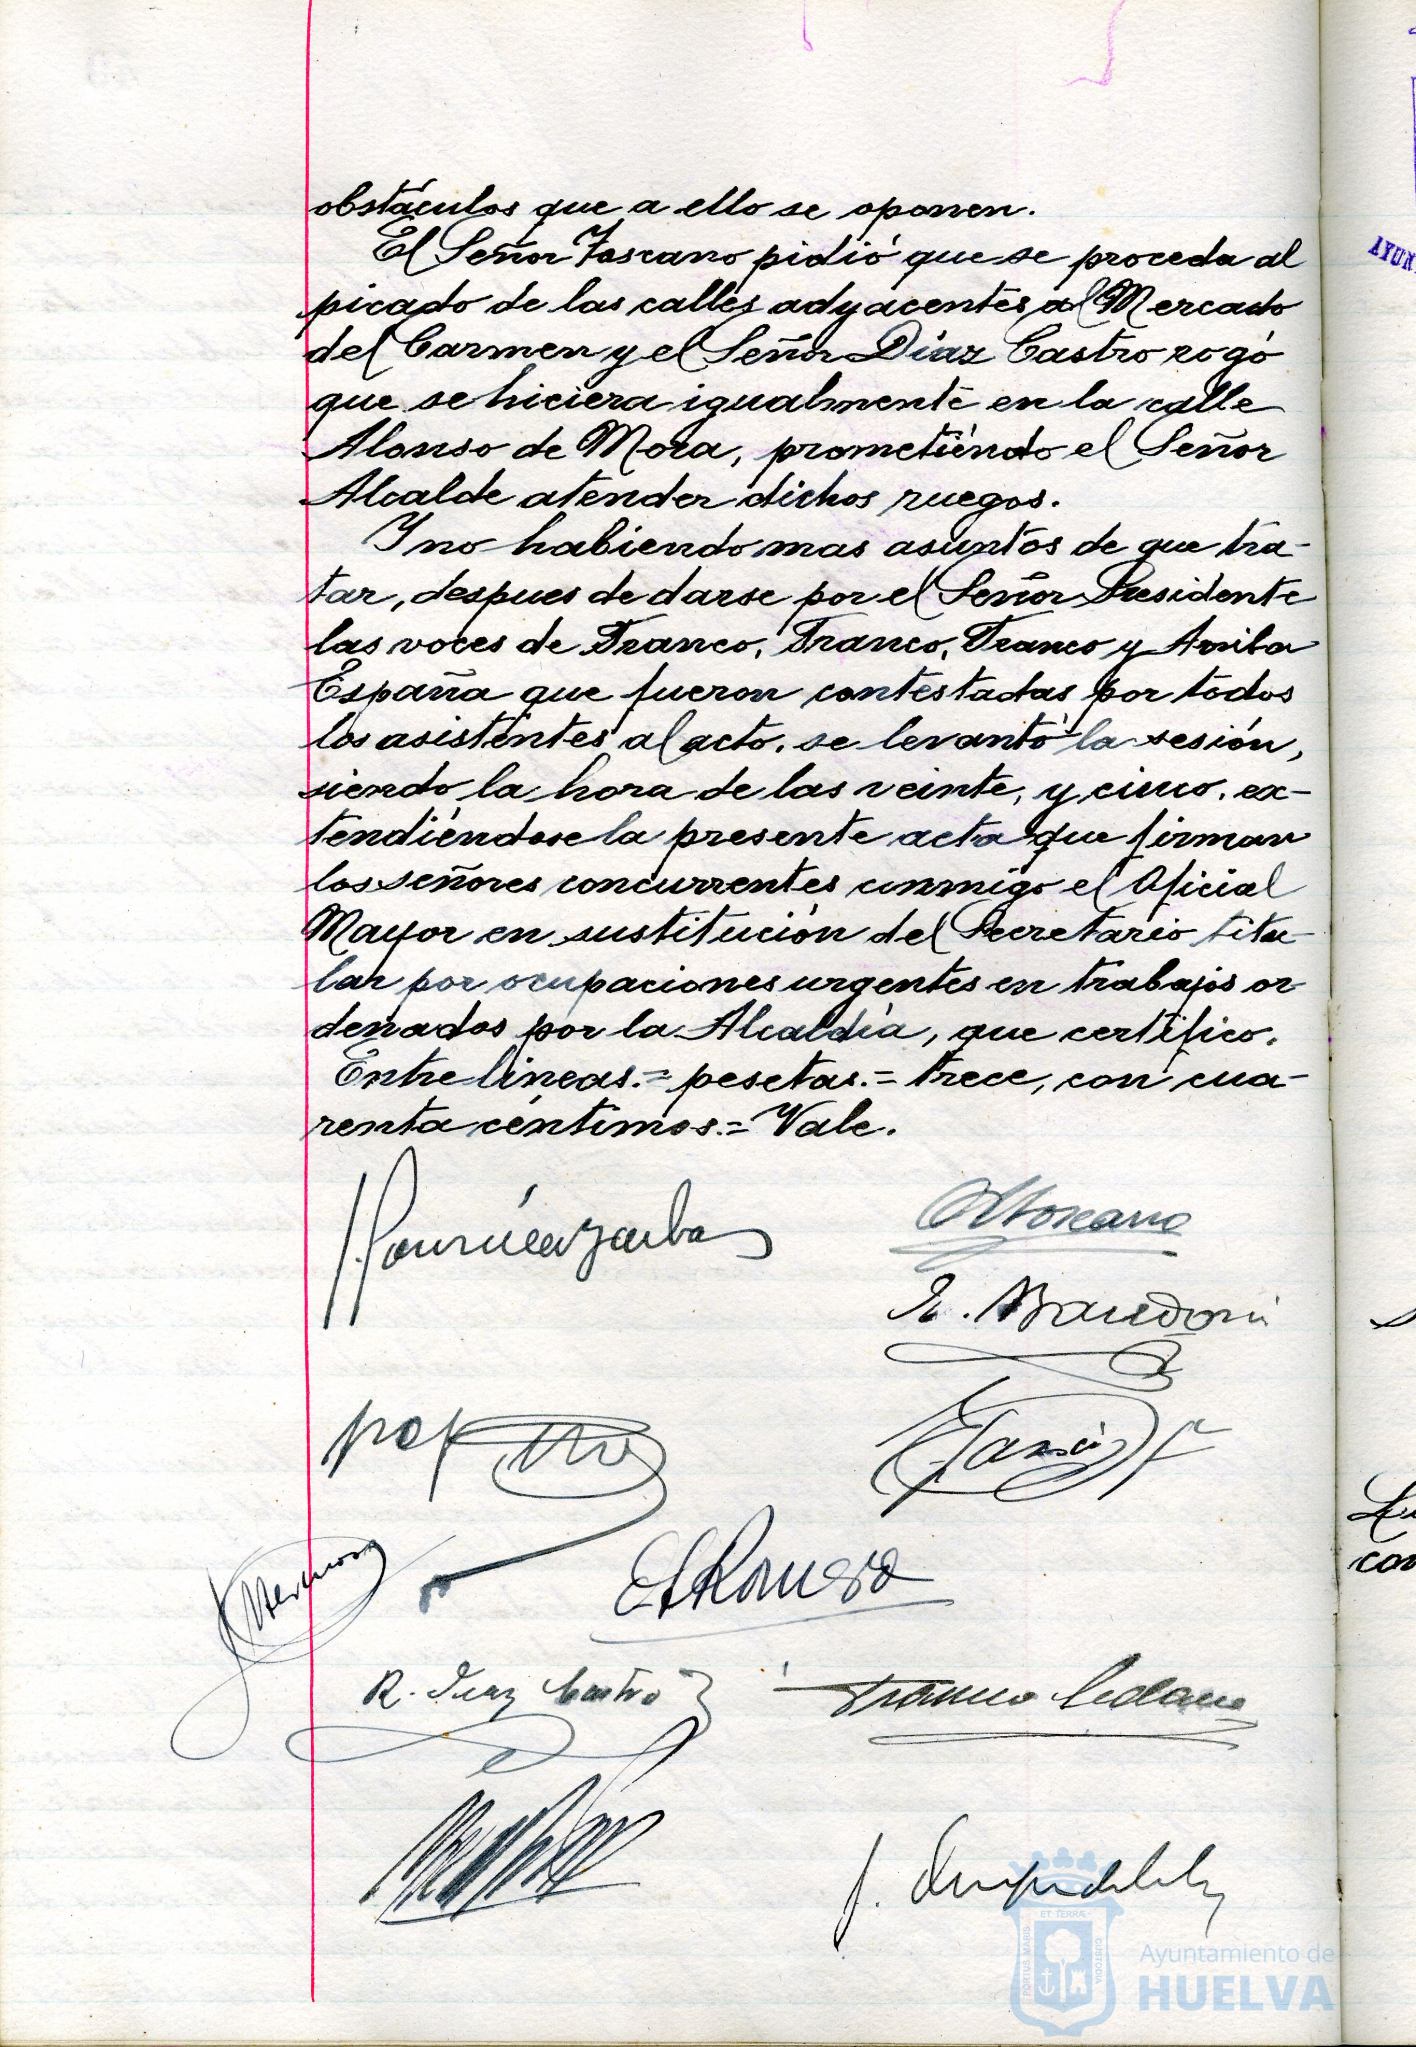 obstáculos que a ello se oponen.
El Señor Toscano pidió que se proceda al
picado de las calles adyacentes al Mercado
del Carmen y el Señor Díaz Castro rogó
que se hiciera igualmente en la calle
Alonso de Mora, prometiendo el Señor
Alcalde atender dichos ruegos.
Y no habiendo mas asuntos de que tra-
tar, despues de darse por el Señor Presidente
las voces de Franco, Franco, Franco y Arriba
España que fueron contestadas por todos
los asistentes al acto, se levantó la sesión,
siendo la hora de las veinte, y cinco, ex-
tendiéndose la presente acta que firman
los señores concurrentes conmigo el Oficial
Mayor en sustitución del Secretario titu-
lar por ocupaciones urgentes en trabajos or
denados por la Alcaldía, que certifico.
Entre líneas.= pesetas.= trece, con cua-
renta céntimos.= Vale.
Toscano
Romero
R. Díaz Castro
Franco
J.
ET TERRÆ
PORTUS MARIS
CUSTODIA
Ayuntamiento de
HUELVA
AYUN